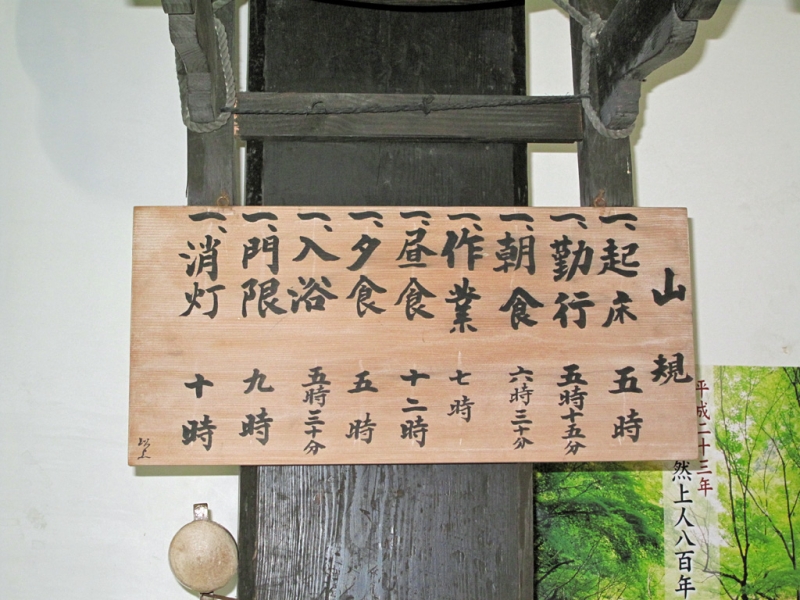 山規
一、起床 五時
一、勤行 五時十五分
一、朝食 六時三十分
一、作業 七時
一、昼食 十二時
一、夕食 五時
一、入浴 五時三十分
一、門限 九時
一、消灯 十時
平成二十三年
然上人八百年